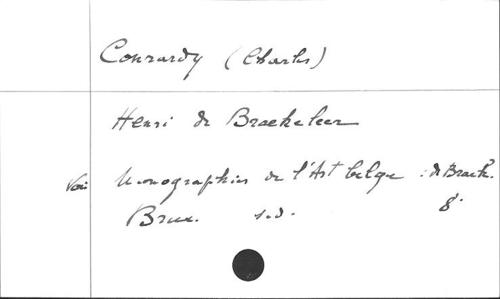 Conrardy (Charles)
Henri de Braekeleer
Voir Monographies de l'Art belge : de Braek.
Brux. s.d. 8°